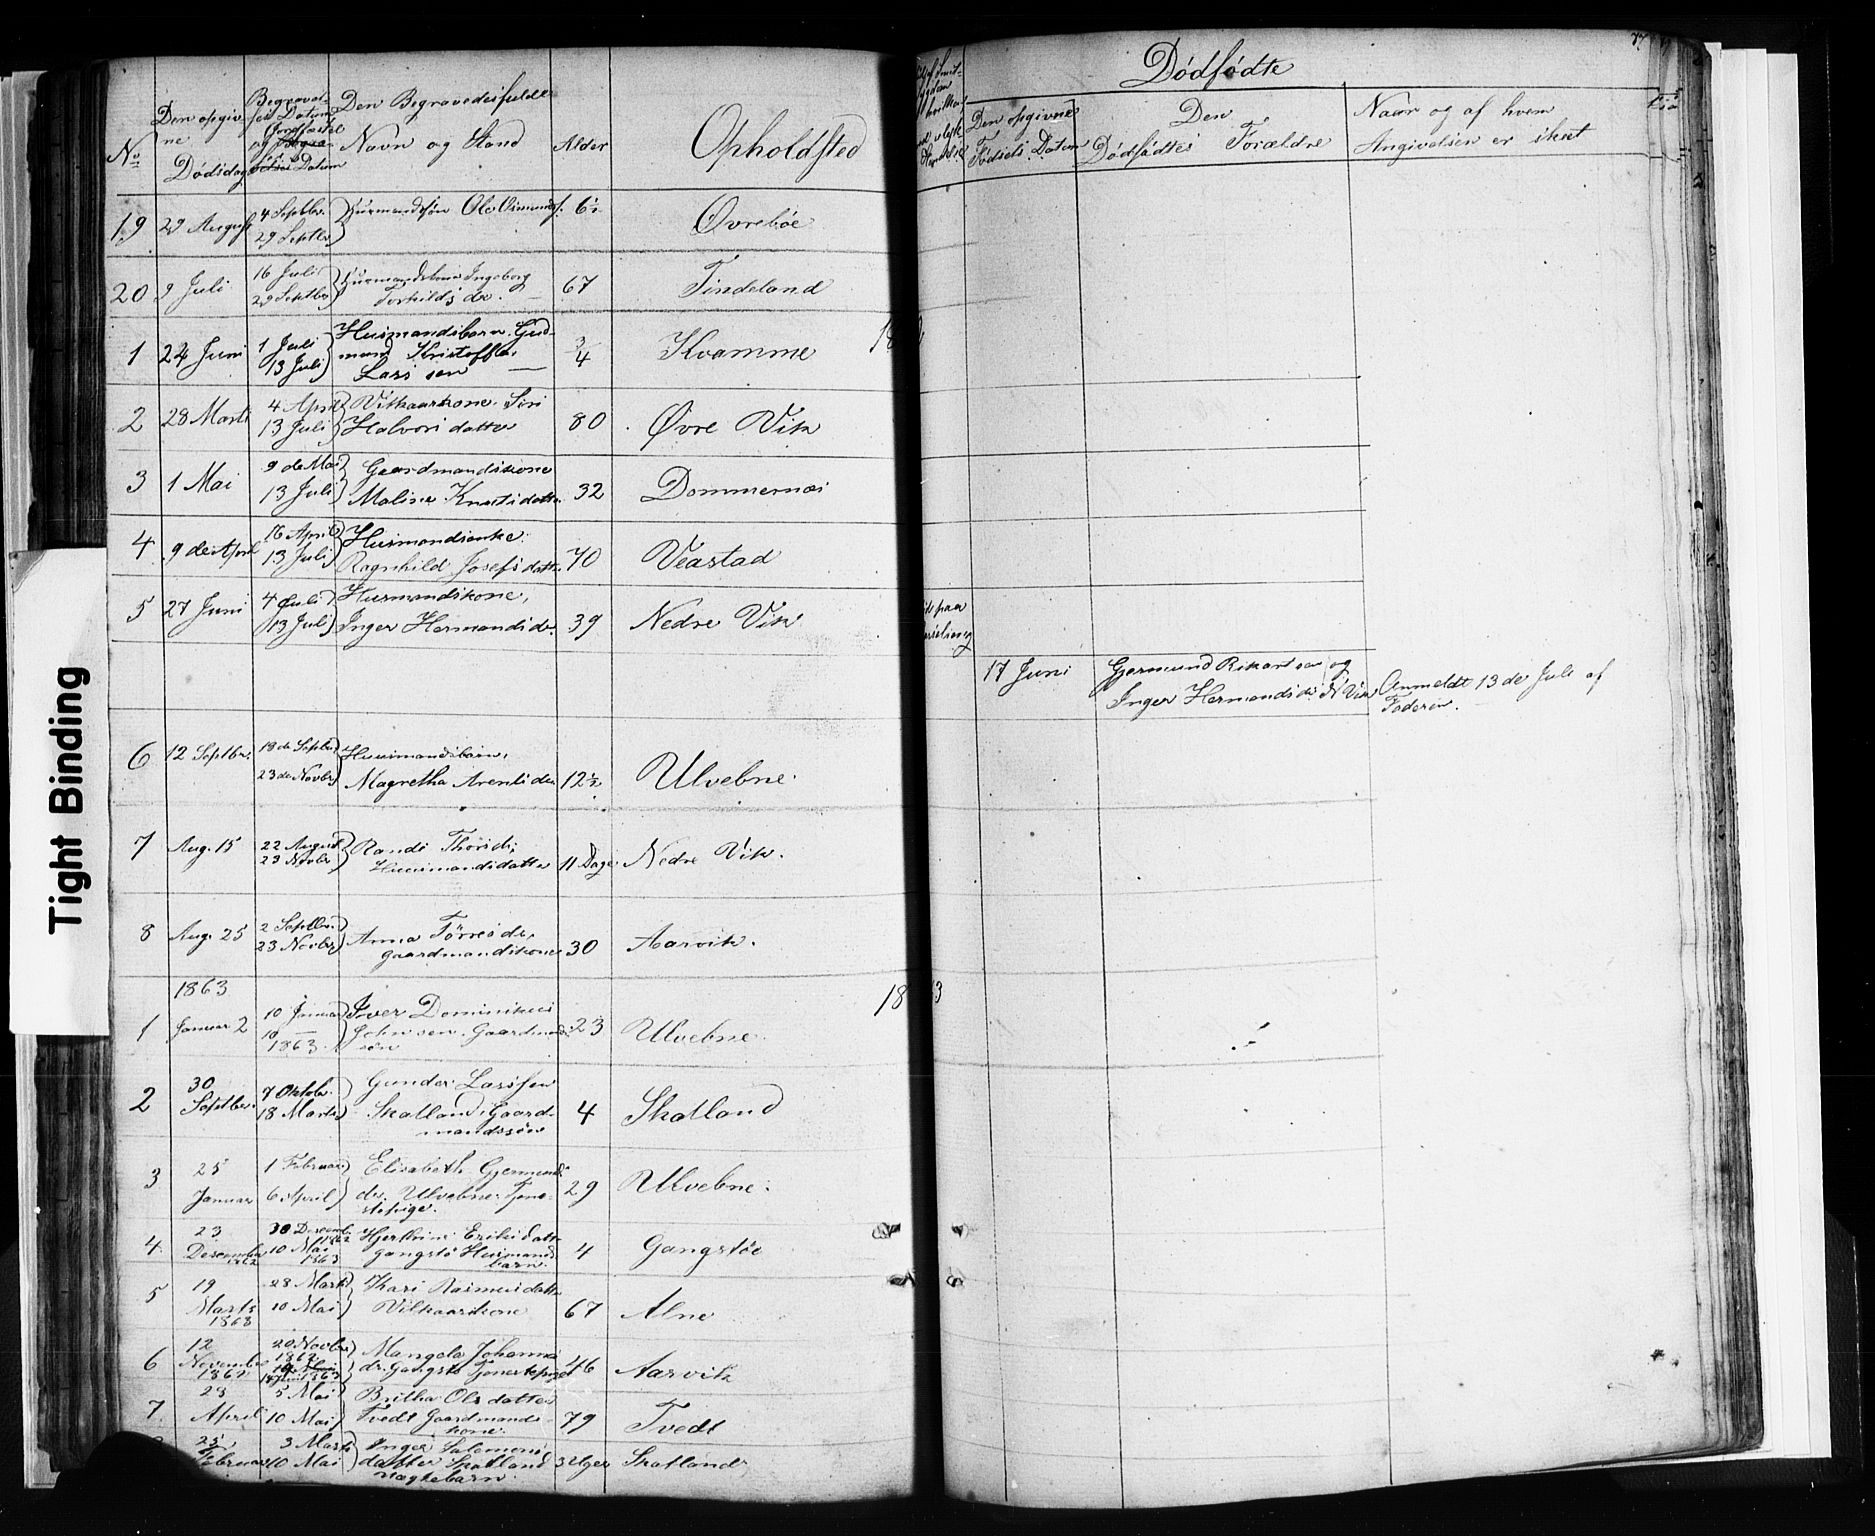 Tight Binding
No
Den opgivne
Dødsdag
Begravelses Datum
Jordfæstelses Datum
Den Begravedes fulde
Navn og Stand
Alder
Opholdsted
19 29 August 4 Septbr. Huusmandssøn Ole Osmunds. 6½ Øvrebøe
29 Septbr
20 9 Juli 16 Juli Huusmandskone Ingeborg 67 Tindeland
29 Septbr Torkildsdr. —
1 24 Juni 1 Juli Huusmandsbarn Gud- 3/4 Kvamme 18
13 Juli mund Kristoffer
Lars sen —
2 28 Marts 4 April Vilkaarkone Siri 80 Øvre Vik
13 Juli Halvors datter
3 1 Mai 9 de Mai Gaardmandskone 32 Dommersnæs
13 Juli Maline Knutsdatter
4 9 de April 16 April Husmandsenke 70 Veastad
13 Juli Ragnhild Josefsdatter
5 27 Juni 4 Juli Husmandskone, 39 Nedre Vik
13 Juli Inger Hermandsdr.
6 12 Septbr. 18 de Septbr Huusmandsbarn, 12½ Ulvebne
23 de Novbr Magretha Arentsdr
7 Aug. 15 22 August Randi Thorsdr, 11 Dage Nedre Vik.
23 Novbr Huusmandsdatter
8 Aug. 25 2 Septbr. Anna Törresdr, 30 Aarvik.
23 Novbr gaardmandskone
1863 18 63
1 Januar 2 10 Januar Iver Dominikus 23 Ulvebne.
10 — Johnsen. Gaardmands
1863. søn
2 30 Septbr. 7 Oktobr. Gunder Larssen 4 Skatland
18 Marts Skatland, Gaard-
mandssøn
3 25 Januar 1 Februar Elisabeth Gjermunds 29 Ulvebne.
6 April dr. Ulvebne. Tjene-
stepige.
4. 23 Desember 1862 30 Desemb. 1862 Hjertrine Eriksdatter 4 Gangstøe
10 Mai 1863 Gangstø Husmands
barn.
5 19 Marts 1863 28 Marts Kari Rasmusdatter 67 Alne
10 Mai Vilkaarskone
6 12 November 1862 20 Novbr 1862 Mangela Johannes 46 Aarvik
1863 dr. Gangstø Tjenestepige
7. 23 April 5 Mai Britha Olsdatter 79 Tvedt
10 Mai Tvedt Gaardmands-
kone.
25 Februar 3 Marts Inger Salemons 3 Uger Skatland
10 Mai datter Skatland
77
Dødfødte
Den opgivne
Fødsels Datum
Den
Dødfødtes Forældre
Naar og af hvem
Angivelsen er skeet
17 Juni Gjermund Rikartsen og
Inger Hermandsdr. N Vik Anmeldt 13 de Juli af
Faderen.